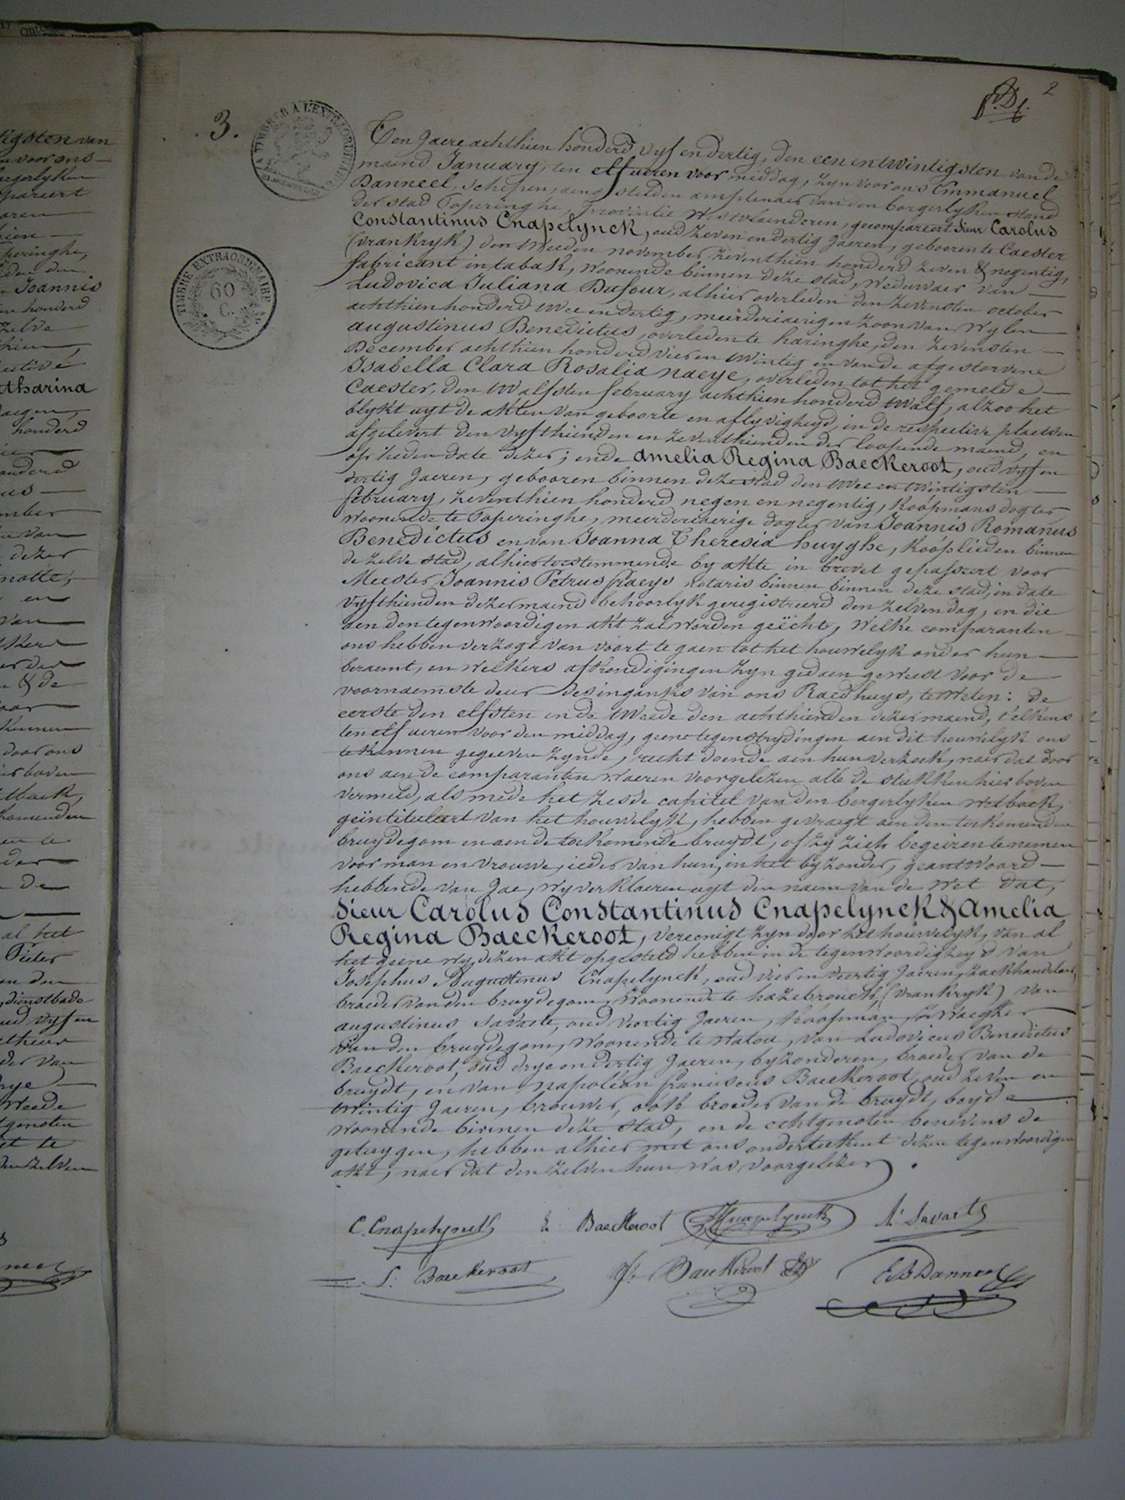 2
3.
TIMBRE EXTRAORDINAIRE
60
C.
Ten Jaere achthien honderd vyf en dertig, den een en twintigsten van de
maend January, ten elf ueren voor middag, zyn voor ons Emmanuel
Danneel, Schepen, aengestelden amptenaer van den borgerlyken stand
der stad Poperinghe, Provintie Westvlaenderen, gecompareert Sieur Carolus
Constantinus Cnapelynck, oud zeven en dertig Jaeren, geboren te Caester
(vrankryk) den tweeden november zeventhien honderd zeven & negentig,
fabricant in tabak, woonende binnen deze stad, weduwaer van
Ludovica Juliana Dafour, alhier overleden den zevensten october
achthien honderd twee en dertig, meerderjaerigen zoon van wylen
augustinus Benedictus, overleden te haringhe, den zevensten
December achthien honderd vier en twintig en van de afgestorvene
Isabella Clara Rosalia naeye, overleden tot het gemelde
Caester, den twalfsten february achthien honderd twalf, alzoo het
blykt uyt de akten van geboorte en aflyvigheyd, in de respective plaetsen
afgelevert den vyfthienden en zeventhienden der loopende maend, en
op heden date dezer; ende Amelia Regina Baeckeroot, oud vyf en
dertig Jaeren, gebooren binnen deze stad den twee en twintigsten
february, zeventhien honderd negen en negentig, koopmans dogter
woonende te Poperinghe, meerderjaerige dogter van Joannis Romanus
Benedictus en van Joanna Theresia huyghe, kooplieden binnen
de zelve stad, alhier toestemmende by akte in brevet gepasseert voor
Meester Joannis Petrus notaris binnen binnen deze stad, in date
vyfthienden dezer maend behoorlyk geregistreerd den zelven dag, en die
aen den tegenwoordigen akt zal worden gehecht, welke comparanten
ons hebben verzogt van voort te gaen tot het houwelyk onder hun
beraemt, en welkers afkondigingen zyn gedaen geweest voor de
voornaemste deur des inganks van ons Raedhuys, te weten: de
eerste den elfsten en de tweede den achthienden dezer maend, t'elkens
ten elf ueren voor den middag, geene tegenstrydingen aen dit houwelyk ons
te kennen gegeeven zynde, recht doende aen hun verzoek, naer dat door
ons aen de comparanten waeren voorgelezen alle de stukken hier boven
vermeld, als mede het zesde capittel van den borgerlyken wetboek,
geintituleert van het houwelyk, hebben gevraegt aen den toekomenden
bruydegom en aen de toekomende bruydt, of zy zich begeiren te nemen
voor man en vrouwe, ieder van hun, in het byzonder, geantwoord
hebbende van Jae, wy verklaeren uyt den naem van de wet dat,
Sieur Carolus Constantinus Cnapelynck & Amelia
Regina Baeckeroot, vereenigt zyn door het houwelyk, van al
het geene wy dezen akt opgesteld hebben in de tegenwoordigheyd van
Josephus Augustinus Cnapelynck, oud vier en veertig Jaeren, zaekhandelaer,
broeder van den bruydegom, woonende te hazebrouck (vrankryk) van
augustinus Savaete, oud veertig Jaeren, koopman, zwaeger
van den bruydegom, woonende te watou, van Ludovicus Benedictus
Baeckeroot, oud dry en dertig Jaeren, byzonderen, broeder van de
bruydt, en van napoleon franciscus Baeckeroot, oud zeven en
twintig Jaeren, brouwer, ook broeder van de bruydt, beyde
woonende binnen deze stad, en de echtgenoten benevens de
getuygen, hebben alhier met ons onderteekent dezen tegenwoordigen
akt, naer dat den zelven hun was voorgelezen.
C. Cnapelynck Baeckeroot Cnapelynck A. Savaete
L. Baeckeroot Baeckeroot E. Danneel